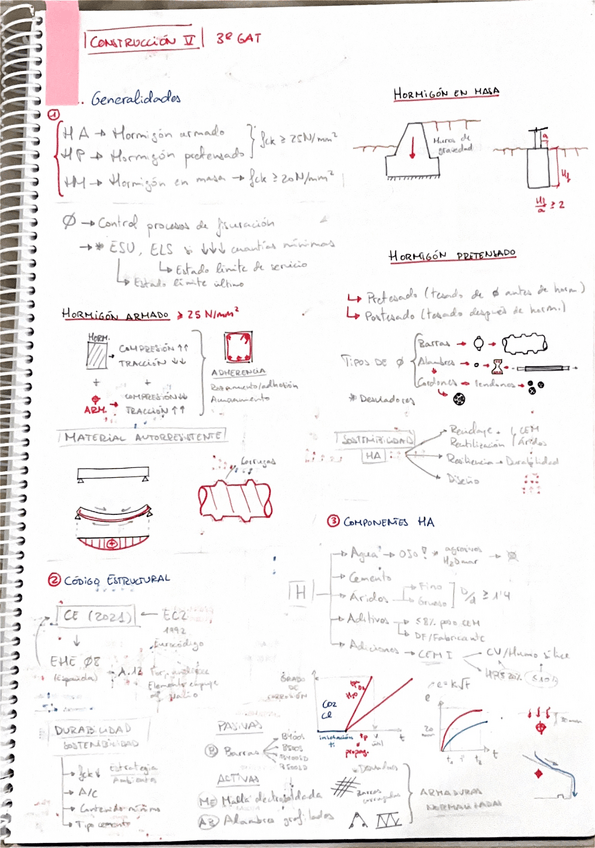 CONSTRUCCIÓN V | 3º GAT
Generalidades
①
HA → Hormigón armado
HP → Hormigón pretensado
fck ≥ 25N/mm²
HM → Hormigón en masa → fck ≥ 20N/mm²
Ø → Control procesos de fisuración
→ * ESU, ELS si ↓↓↓ cuantías mínimas
↳ Estado límite de servicio
↳ Estado límite último
HORMIGÓN ARMADO ≥ 25 N/mm²
HORM.
→ COMPRESIÓN ↑↑
TRACCIÓN ↓↓
+ +
ARM. → COMPRESIÓN ↓↓
TRACCIÓN ↑↑
ADHERENCIA
Rozamiento/adhesión
MATERIAL AUTORRESISTENTE
Corrugas
② CÓDIGO ESTRUCTURAL
CE (2021) ← EC2
1992
Eurocódigo
EHE 08
(española)
DURABILIDAD
SOSTENIBILIDAD
fck ↓ Estrategia
Ambiente
A/C
Contenido mínimo
Tipo cemento
HORMIGÓN EN MASA
Muros de
gravedad
≥ 2
HORMIGÓN PRETENSADO
↳ Pretesado (tesado de Ø antes de horm.)
↳ Postesado (tesado después de horm.)
TIPOS DE Ø
Barras →
Alambres →
Cordones → Tendones →
SOSTENIBILIDAD
HA
Reciclaje
CEM
Reutilización
Áridos
Resiliencia → Durabilidad
Diseño
③ COMPONENTES HA
H
Agua → OJO!
Cemento
Áridos
Fino
Grueso
D/d ≥ 1'4
Aditivos
≤5% peso CEM
DF/Fabricante
Adiciones → CEM I
CV/Humo sílice
GRADO
DE
CO2
Cl
H2O
t
PASIVAS
Ⓑ Barras
B400S
B500S
B400SD
B500SD
ACTIVAS
ME Malla electrosoldada
AB Alambres grafilados
ARMADURAS
NORMALIZADAS